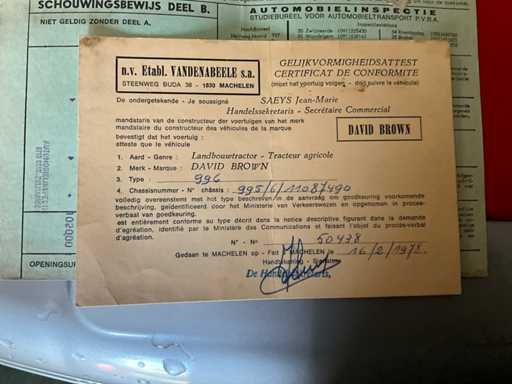 SCHOUWINGSBEWIJS DEEL B.
NIET GELDIG ZONDER DEEL A.
AUTOMOBIELINSPECTIE
STUDIEBUREEL VOOR AUTOMOBIELTRANSPORT P.V.B.A.
n.v. Etabl. VANDENABEELE s.a.
STEENWEG BUDA 36 - 1830 MACHELEN
GELIJKVORMIGHEIDSATTEST
CERTIFICAT DE CONFORMITE
(moet het voertuig volgen - doit suivre le véhicule)
De ondergetekende - Je soussigné SAEYS Jean-Marie
Handelssekretaris - Secrétaire Commercial
mandataris van de constructeur der voertuigen van het merk
mandataire du constructeur des véhicules de la marque
DAVID BROWN
bevestigt dat het voertuig :
atteste que le véhicule
1. Aard - Genre : Landbouwtractor - Tracteur agricole
2. Merk - Marque : DAVID BROWN
3. Type : 996
4. Chassisnummer - N° châssis : 995/6/11087490
volledig overeenstemt met het type beschreven in de aanvraag om goedkeuring voorkomende
beschrijving, geïdentificeerd door het Ministerie van Verkeerswezen en opgenomen in proces-
verbaal van goedkeuring.
est entièrement conforme au type décrit dans la notice descriptive figurant dans la demande
d'agréation, identifié par le Ministère des Communications et faisant l'objet du procès-verbal
d'agréation.
N° - Nr 50438
Gedaan te MACHELEN op - Fait à MACHELEN le 16/2/197
De Handelssekretaris,
OPENINGSU